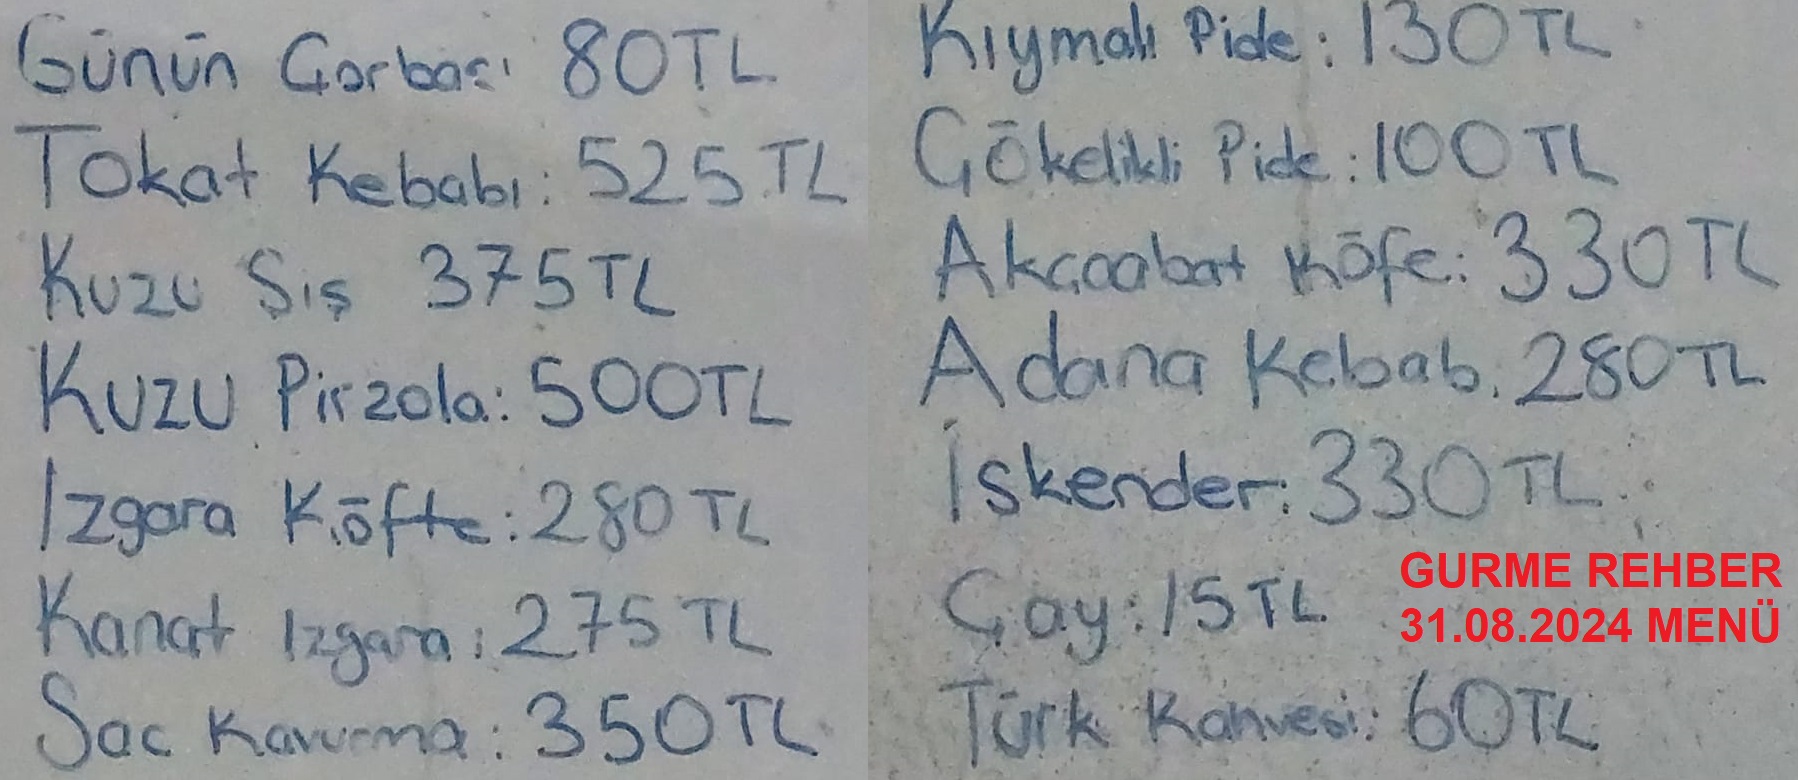 Günün Çorbası 80TL
Tokat Kebabı: 525 TL
Kuzu Şiş 375 TL
Kuzu Pirzola: 500TL
Izgara Köfte: 280 TL
Kanat Izgara: 275 TL
Sac Kavurma: 350TL
Kıymalı Pide: 130TL
Çökelikli Pide: 100 TL
Akçaabat Köfe: 330 TL
Adana Kebab: 280 TL
İskender: 330 TL
Çay: 15 TL
Türk Kahvesi: 60TL
GURME REHBER
31.08.2024 MENÜ